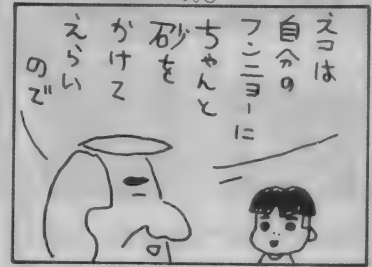 ネコは
自分の
フンニョーに
ちゃんと
砂を
かけて
えらい
ので